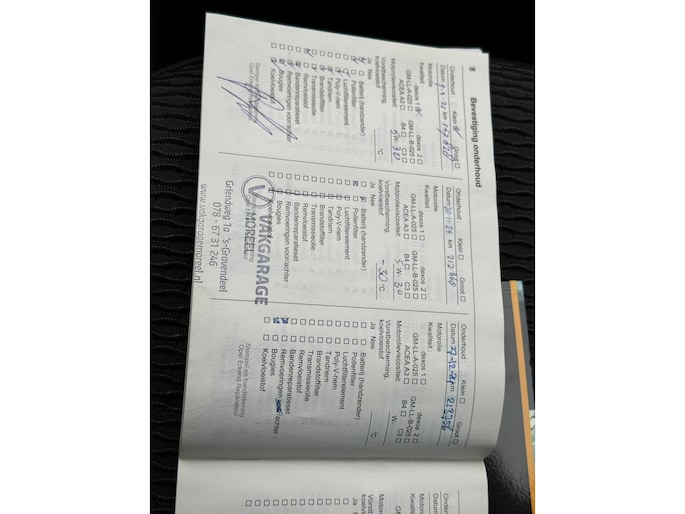 8
Bevestiging onderhoud
Onderhoud Klein Groot
Datum km
Motorolie
Kwaliteit dexos 1 dexos 2
GM-LL-A-025 GM-LL-B-025
ACEA A3 B4 C3
Motorolieviscositeit: 5W-30
Vorstbescherming,
koelvloeistof: °C
Ja Nee
Batterij (handzender)
Pollenfilter
Luchtfilterelement
Poly-V-riem
Tandriem
Brandstoffilter
Transmissieolie
Remvloeistof
Bandenreparatieset
Remvoeringen voor/achter
Bougies
Koelvloeistof
Onderhoud Klein Groot
Datum km 212868
Motorolie
Kwaliteit dexos 1 dexos 2
GM-LL-A-025 GM-LL-B-025
ACEA A3 B4 C3
Motorolieviscositeit: 5 W- 30
Vorstbescherming,
koelvloeistof: -30 °C
Ja Nee
Batterij (handzender)
Pollenfilter
Luchtfilterelement
Poly-V-riem
Tandriem
Brandstoffilter
Transmissieolie
Remvloeistof
Bandenreparatieset
Remvoeringen voor/achter
Bougies
VAKGARAGE
MOREEL
Griendweg 1a 's-Gravendeel
078 - 67 31 246
www.vakgaragemoreel.nl
Onderhoud Klein Groot
Datum 27-12-24
Motorolie
Kwaliteit dexos 1 dexos 2
GM-LL-A-025 GM-LL-B-025
ACEA A3 B4 C3
Motorolieviscositeit: W-
Vorstbescherming,
koelvloeistof: °C
Ja Nee
Batterij (handzender)
Pollenfilter
Luchtfilterelement
Poly-V-riem
Tandriem
Brandstoffilter
Transmissieolie
Remvloeistof
Bandenreparatieset
Remvoeringen voor/achter
Bougies
Koelvloeistof
Stempel en handtekening
Opel Erkend Reparateur